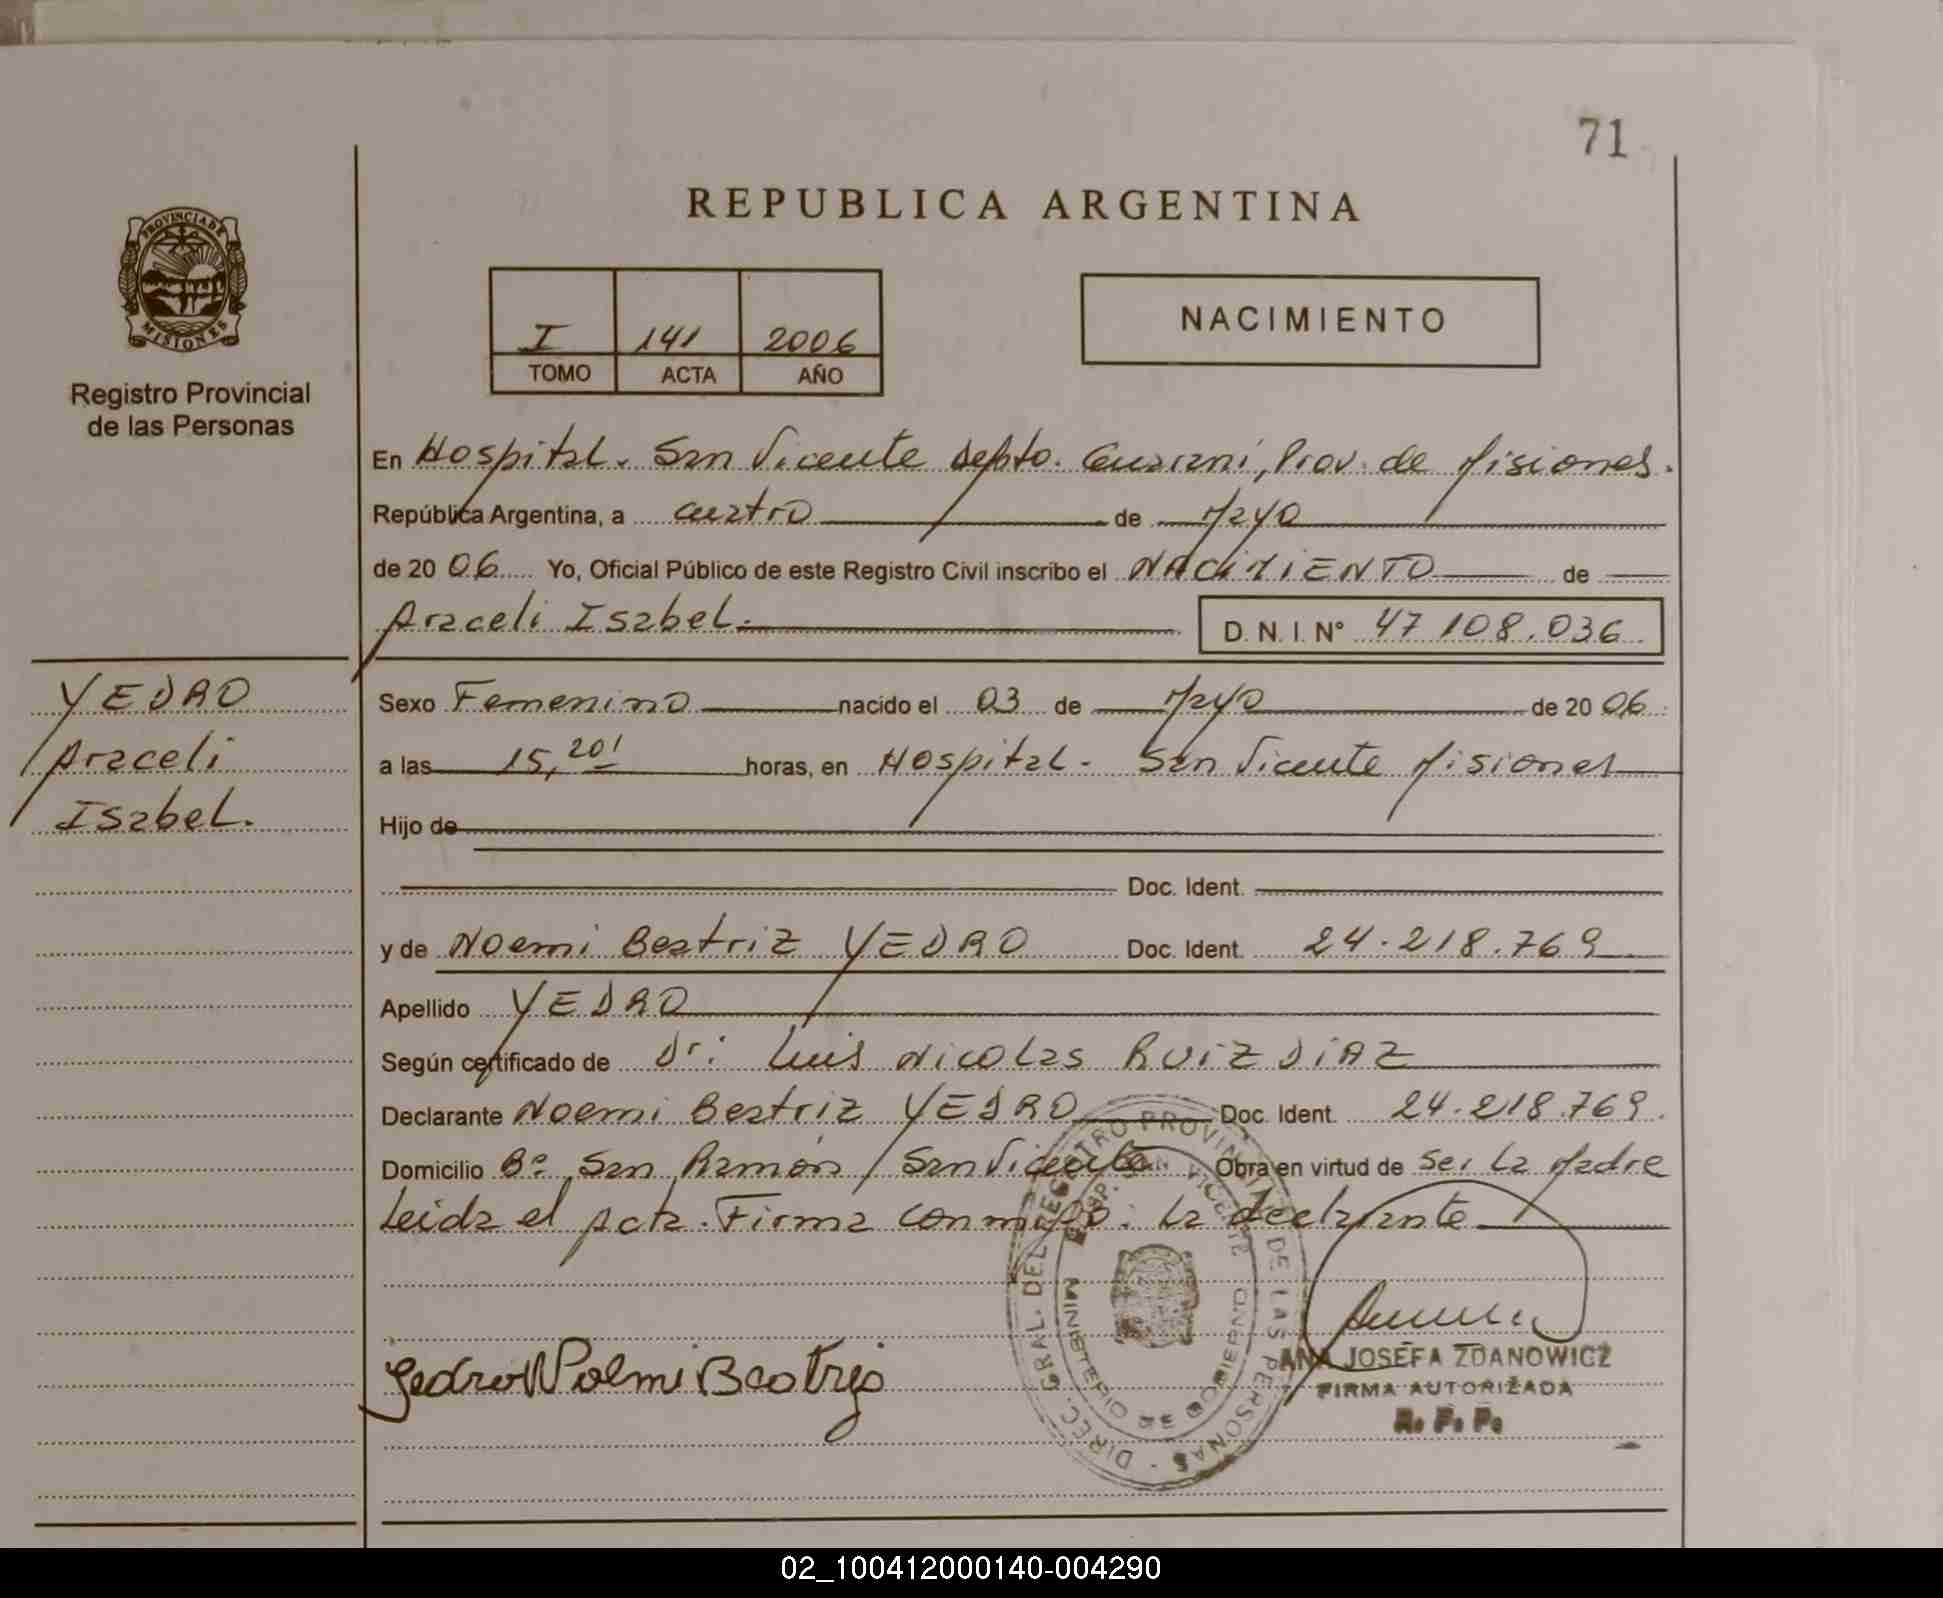 71
REPUBLICA ARGENTINA
PROVINCIA DE
MISIONES
Registro Provincial
de las Personas
I 141 2006
TOMO ACTA AÑO
NACIMIENTO
En Hospital. San Vicente Depto. Guaraní, Prov. de Misiones.
República Argentina, a cuatro de Mayo
de 20 06 Yo, Oficial Público de este Registro Civil inscribo el NACIMIENTO de
Araceli Isabel. D. N. I. N° 47 108.036
YEDRO
Araceli
Isabel.
Sexo Femenino nacido el 03 de Mayo de 20 06
a las 15,20' horas, en Hospital - San Vicente Misiones
Hijo de
Doc. Ident.
y de Noemi Beatriz YEDRO Doc. Ident. 24.218.769
Apellido YEDRO
Según certificado de Dr: Luis Nicolas RUIZ DIAZ
Declarante Noemi Beatriz YEDRO Doc. Ident. 24.218.769.
Domicilio B° San Ramón, San Vicente Obra en virtud de ser la Madre
Leida el Acta. Firma conmigo: la declarante
DIREC. GRAL. DEL REGISTRO PROVINCIAL DE LAS PERSONAS -
SAN VICENTE
MINISTERIO DE GOBIERNO
ANA JOSEFA ZDANOWICZ
FIRMA AUTORIZADA
R. P. P.
02_100412000140-004290